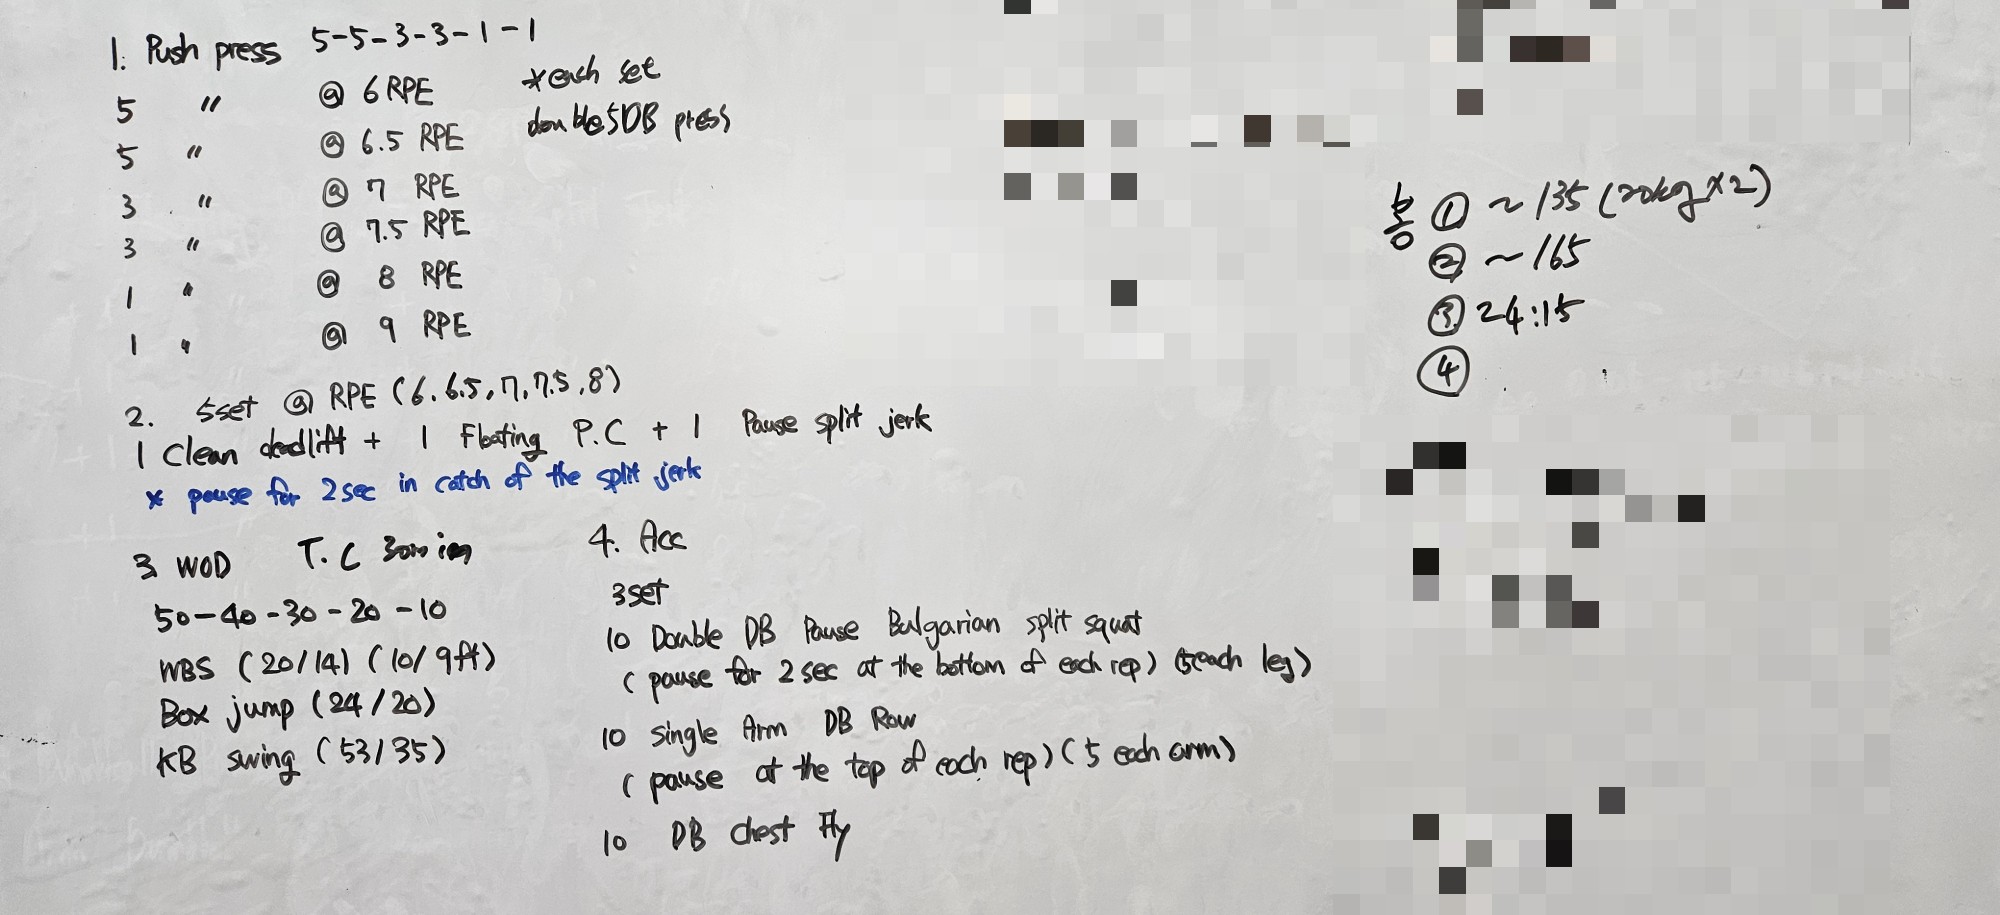 1. Push press 5-5-3-3-1-1
5 〃 @ 6 RPE
5 〃 @ 6.5 RPE
3 〃 @ 7 RPE
3 〃 @ 7.5 RPE
1 〃 @ 8 RPE
1 〃 @ 9 RPE
* each set
double 5 DB press
2. 5set @ RPE (6, 6.5, 7, 7.5, 8)
1 Clean deadlift + 1 Floating P.C + 1 Pause split jerk
* pause for 2sec in catch of the split jerk
3 WOD T.C 30min
50-40-30-20-10
WBS (20/14) (10/9ft)
Box jump (24/20)
KB swing (53/35)
4. Acc
3set
10 Double DB Pause Bulgarian split squat
(pause for 2sec at the bottom of each rep) (5 each leg)
10 Single Arm DB Row
(pause at the top of each rep) (5 each arm)
10 DB chest Fly
봉 ① ~135 (20kg×2)
② ~165
③ 24:15
④